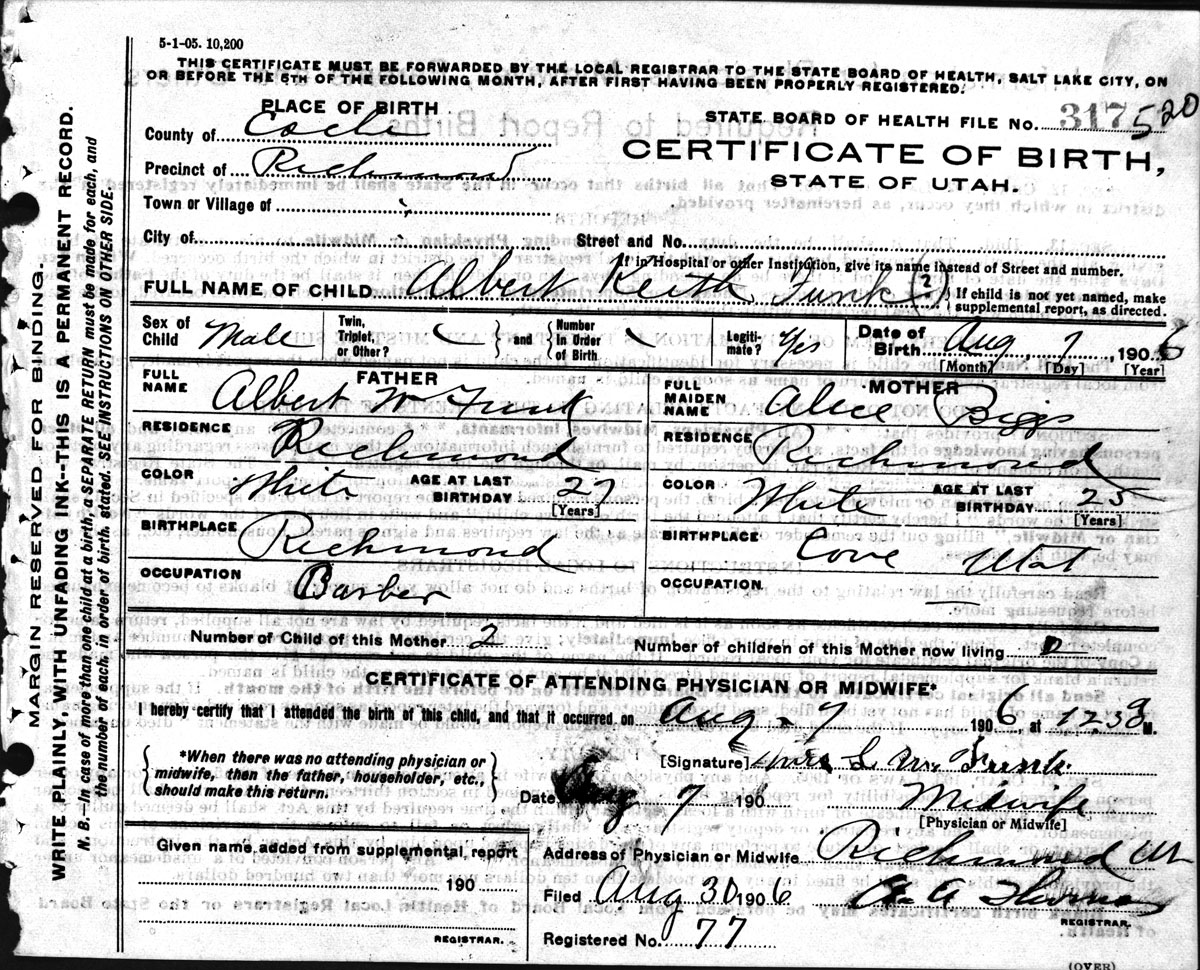 5-1-05. 10,200
THIS CERTIFICATE MUST BE FORWARDED BY THE LOCAL REGISTRAR TO THE STATE BOARD OF HEALTH, SALT LAKE CITY, ON
OR BEFORE THE 5TH OF THE FOLLOWING MONTH, AFTER FIRST HAVING BEEN PROPERLY REGISTERED.
PLACE OF BIRTH
STATE BOARD OF HEALTH FILE No. 317 520
County of Cache
CERTIFICATE OF BIRTH,
Precinct of Richmond
STATE OF UTAH.
Town or Village of
City of
Street and No.
If in Hospital or other Institution, give its name instead of Street and number.
FULL NAME OF CHILD Albert Keith Funk (?)
If child is not yet named, make supplemental report, as directed.
Sex of Child Male Twin, Triplet, or Other? and Number In Order of Birth Legitimate? Yes Date of Birth Aug 7, 1906
[Month] [Day] [Year]
FATHER
FULL NAME Albert W Funk
RESIDENCE Richmond
COLOR White AGE AT LAST BIRTHDAY 27
[Years]
BIRTHPLACE Richmond
OCCUPATION Barber
MOTHER
FULL MAIDEN NAME Alice Biggs
RESIDENCE Richmond
COLOR White AGE AT LAST BIRTHDAY 25
[Years]
BIRTHPLACE Cove Utat
OCCUPATION
Number of Child of this Mother 2
Number of children of this Mother now living
CERTIFICATE OF ATTENDING PHYSICIAN OR MIDWIFE*
I hereby certify that I attended the birth of this child, and that it occurred on Aug - 7 1906, at M.
*When there was no attending physician or
midwife, then the father, householder, etc.,
should make this return.
[Signature] Funk
Date Aug 7 190
Midwife
[Physician or Midwife]
Given name added from supplemental report
190
REGISTRAR.
Address of Physician or Midwife Richmond Ut
Filed Aug 30 1906
REGISTRAR.
Registered No. 77
(OVER)
MARGIN RESERVED FOR BINDING.
WRITE PLAINLY, WITH UNFADING INK--THIS IS A PERMANENT RECORD.
N. B.--In case of more than one child at a birth, a SEPARATE RETURN must be made for each, and
the number of each, in order of birth, stated. SEE INSTRUCTIONS ON OTHER SIDE.